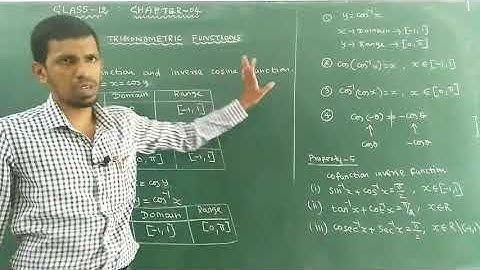 CLASS-12 : CHAPTER-04
TRIGONOMETRIC FUNCTIONS
function and inverse cosine function.
= x = cos y.
Domain Range
[-1,1]
[0,π] [-1,1]
= cos y
x
Domain Range
[-1,1] [0,π]
① y = cos⁻¹x
x → Domain → [-1,1]
y → Range → [0,π]
② cos(cos⁻¹x) = x, x ∈ [-1,1]
③ cos⁻¹(cos x) = x, x ∈ [0,π]
④ cos(-θ) ≠ -cosθ
cosθ -cosθ
Property-5
cofunction inverse function
(i) sin⁻¹x + cos⁻¹x = π/2, x ∈ [-1,1]
(ii) tan⁻¹x + cot⁻¹x = π/2, x ∈ R
(iii) cosec⁻¹x + sec⁻¹x = π/2, x ∈ R\(-1,1)